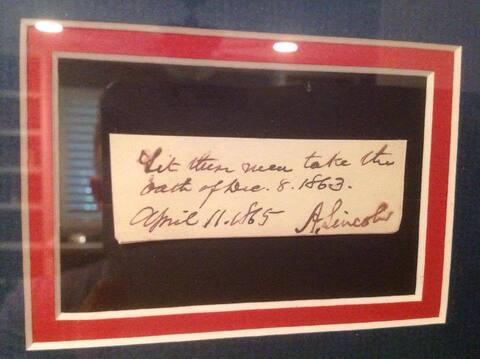 Let these men take the
oath of Dec. 8. 1863.
April 11. 1865 A. Lincoln